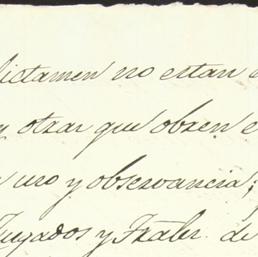 dictamen no estan
y otras que obren e
uso y observancia;
Juzados y de